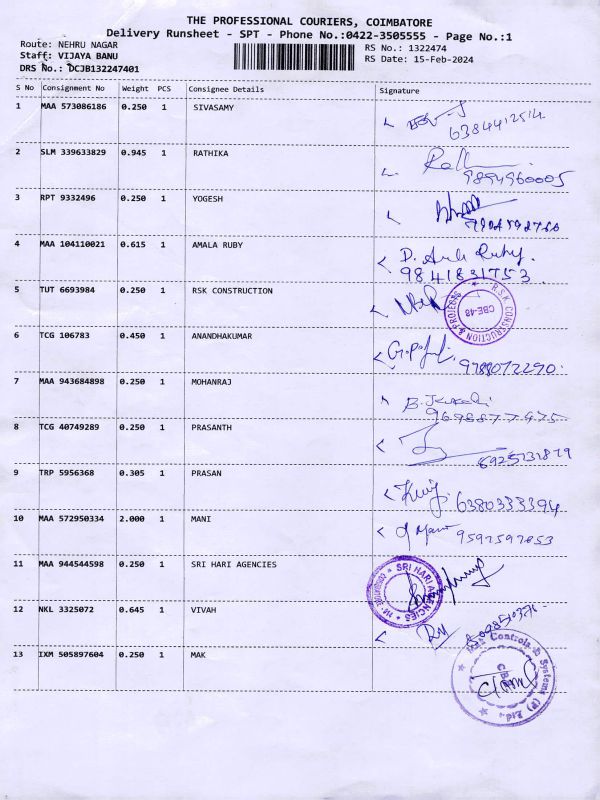 THE PROFESSIONAL COURIERS, COIMBATORE
Delivery Runsheet - SPT - Phone No.:0422-3505555 - Page No.:1
Route: NEHRU NAGAR
Staff: VIJAYA BANU
DRS No.: DCJB132247401
RS No.: 1322474
RS Date: 15-Feb-2024
S No Consignment No Weight PCS Consignee Details Signature
1 MAA 573086186 0.250 1 SIVASAMY
6384412514
2 SLM 339633829 0.945 1 RATHIKA
9894960005
3 RPT 9332496 0.250 1 YOGESH
4 MAA 104110021 0.615 1 AMALA RUBY D. Ruby.
9841831753
5 TUT 6693984 0.250 1 RSK CONSTRUCTION
R.S.K CONSTRUCTION & PROJECTS CBE-48
6 TCG 106783 0.450 1 ANANDHAKUMAR
9788072290.
7 MAA 943684898 0.250 1 MOHANRAJ
8 TCG 40749289 0.250 1 PRASANTH
9 TRP 5956368 0.305 1 PRASAN
6380333394
10 MAA 572950334 2.000 1 MANI Mani 9597597053
11 MAA 944544598 0.250 1 SRI HARI AGENCIES
SRI HARI AGENCIES
12 NKL 3325072 0.645 1 VIVAH
13 IXM 505897604 0.250 1 MAK
Mak Controls & Systems (P) Ltd.,